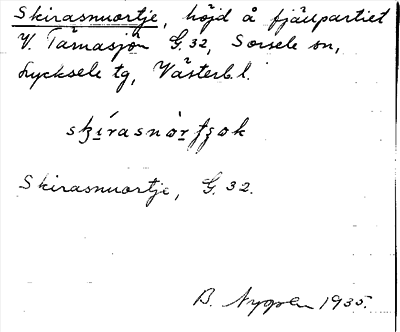 Skirasnuortje, höjd å fjällpartiet
V. Tärnasjön G. 32, Sorsele sn,
Lycksele tg, Västerb. l.
Skirasnuortje, G. 32.
B. Nygren 1935.